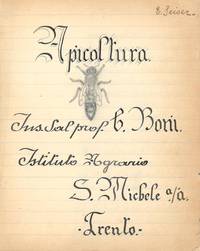 E. Zeiser
Apicoltura.
Ins. Sal prof. C. Boni.
Istituto Agrario
S. Michele a/A.
-Trento-